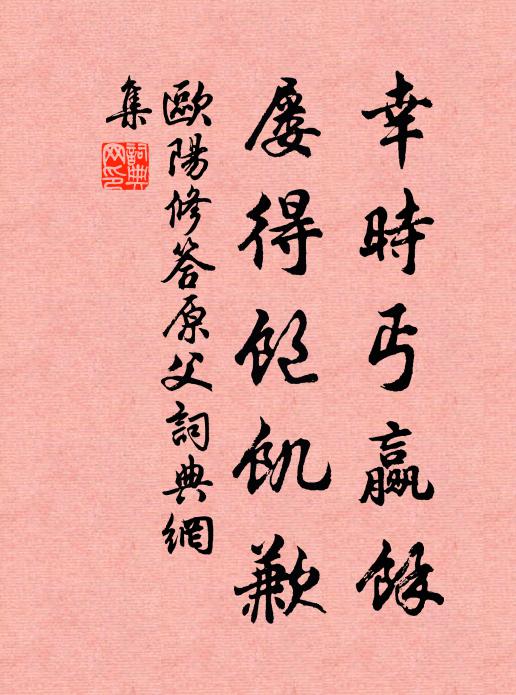 幸時丐贏餘
屢得飽飢歉
歐陽修答原父詞典網
集
詞典網印